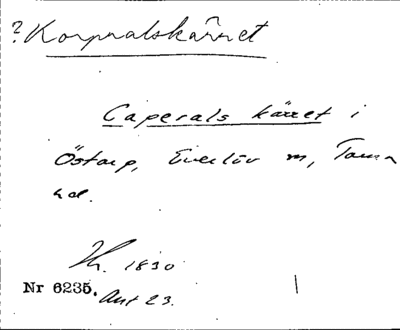 ? Korpralskärret
Caperals kärret i
Östarp, Everlöv m, Torna
hd.
Kh. 1830
Nr 6235. Akt 23.